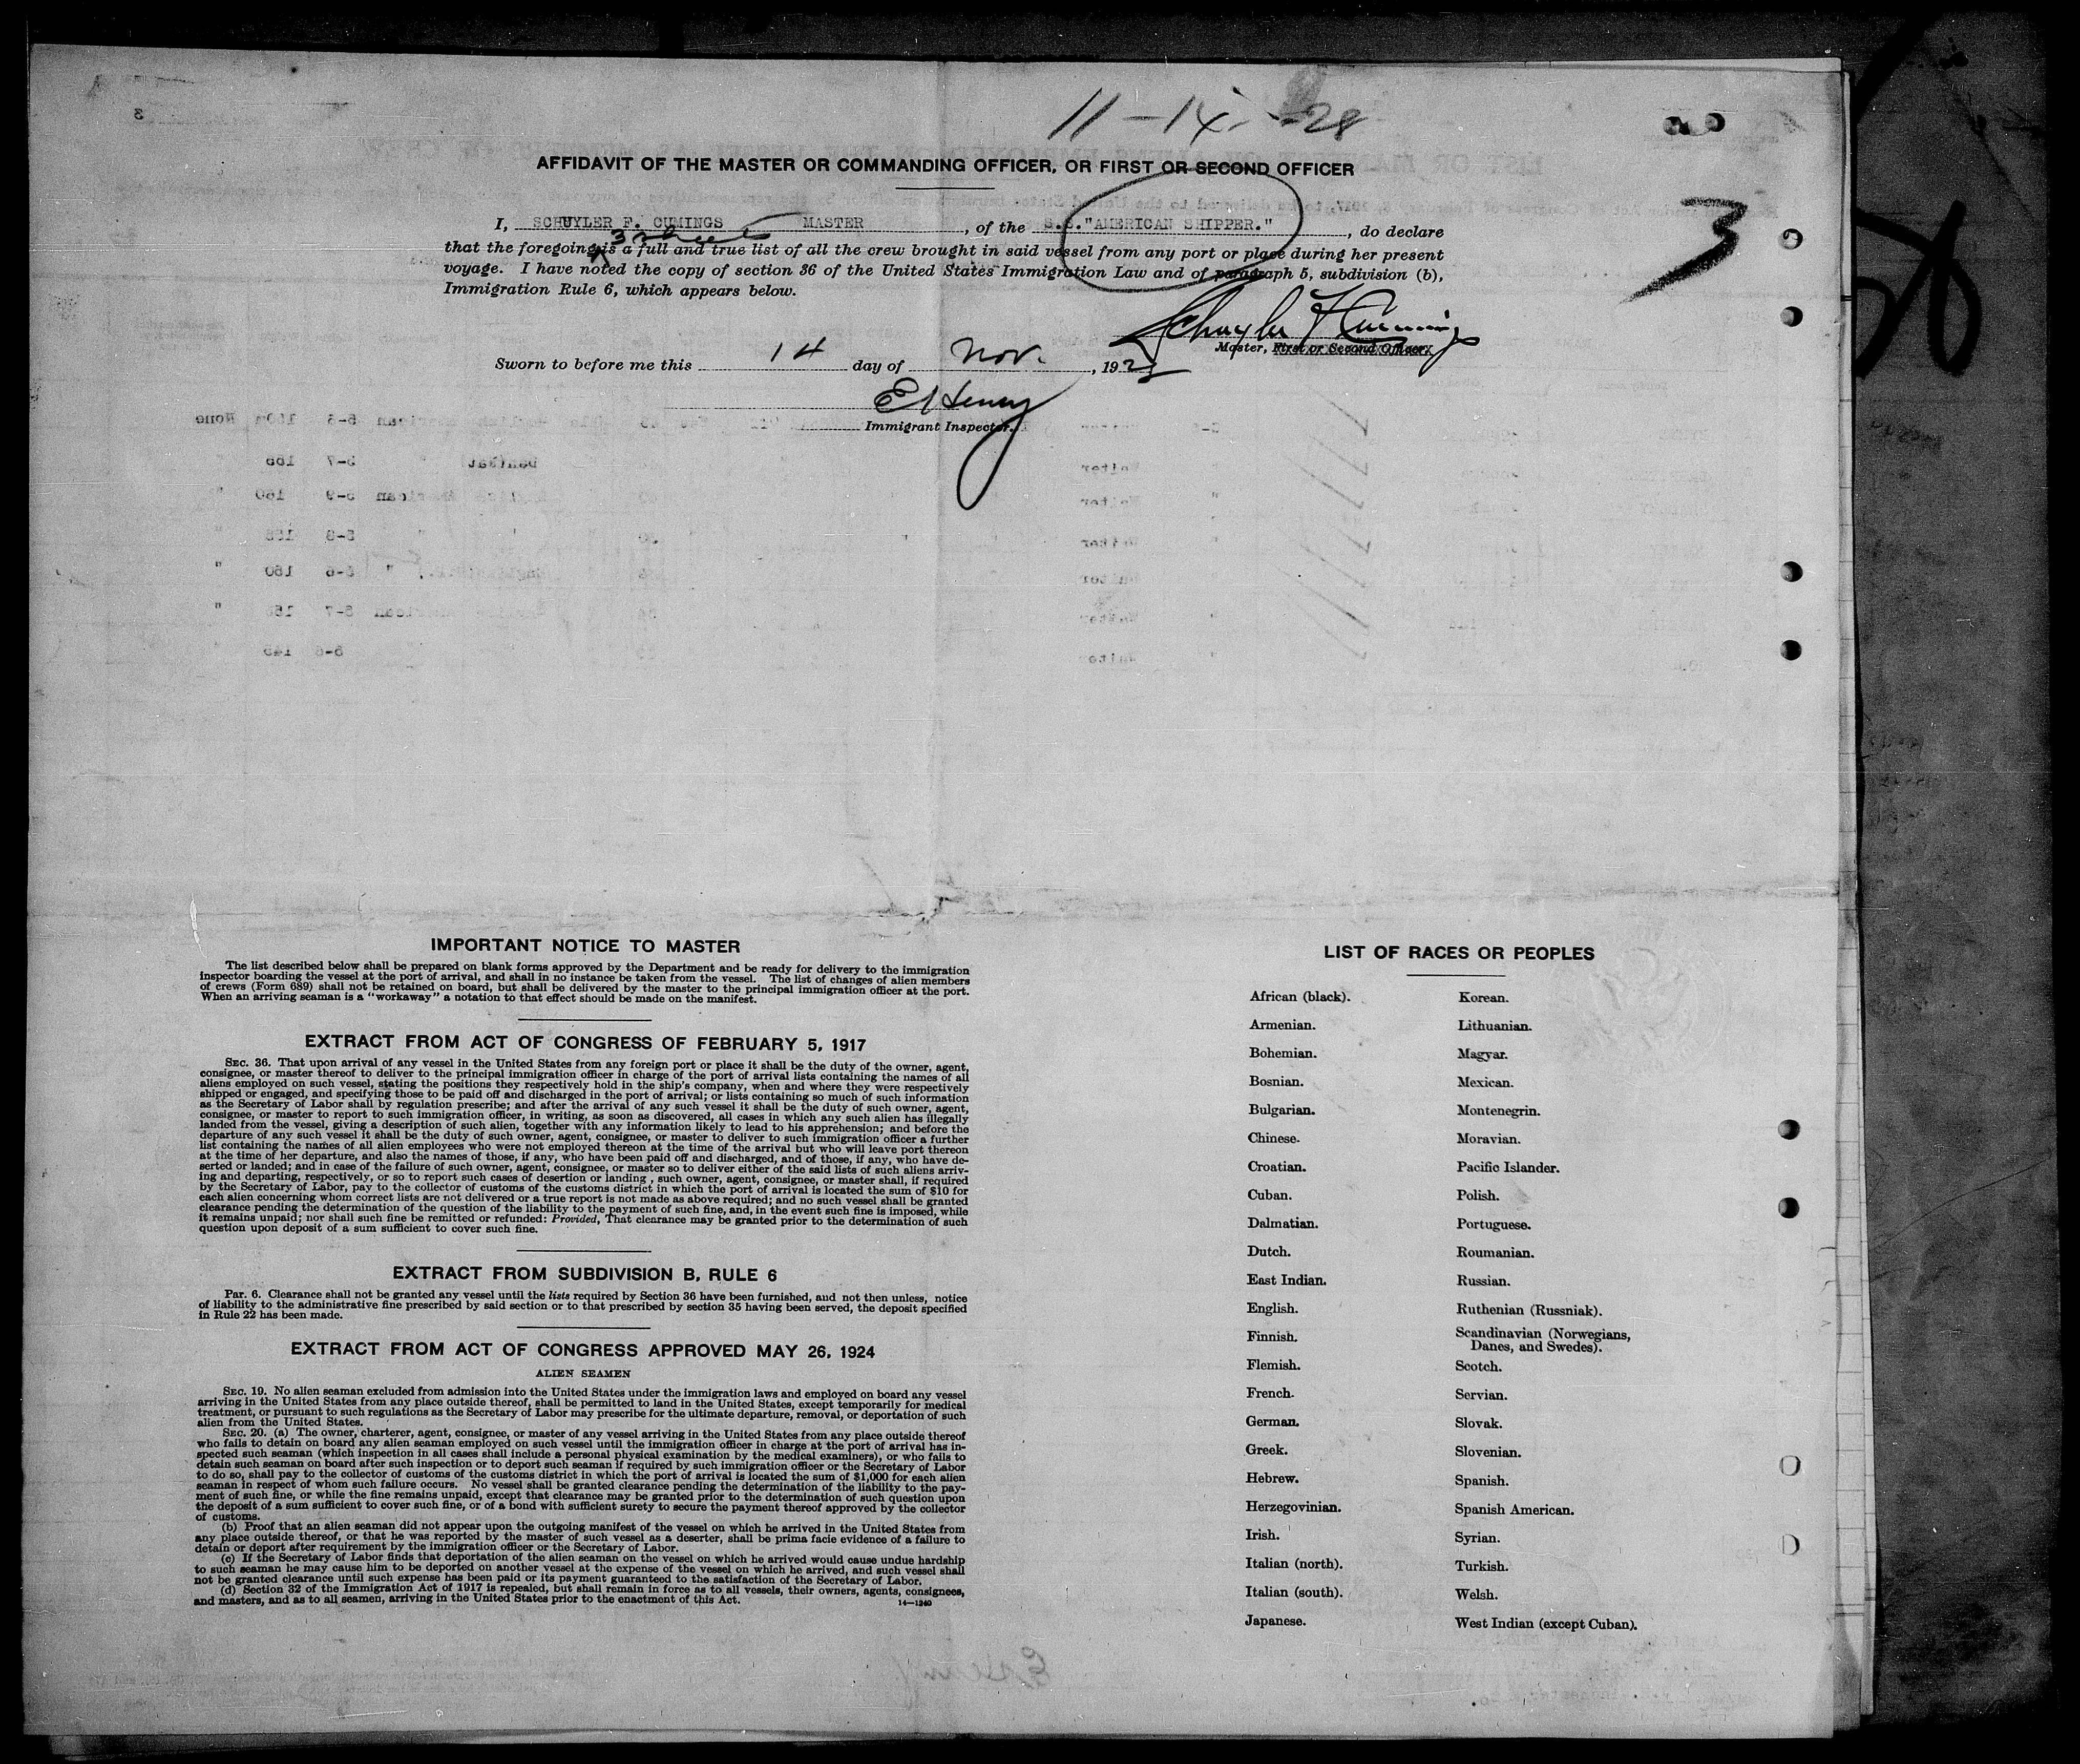 11-14-28
AFFIDAVIT OF THE MASTER OR COMMANDING OFFICER, OR FIRST OR SECOND OFFICER
I, SCHUYLER F. CUMINGS MASTER, of the S.S."AMERICAN SHIPPER.", do declare
3 sheets
that the foregoing is a full and true list of all the crew brought in said vessel from any port or place during her present
voyage. I have noted the copy of section 36 of the United States Immigration Law and of paragraph 5, subdivision (b),
Immigration Rule 6, which appears below.
3
Schuyler F Cumings
Master, First or Second Officer.
Sworn to before me this 14 day of Nov., 192
E Henry
Immigrant Inspector.
IMPORTANT NOTICE TO MASTER
The list described below shall be prepared on blank forms approved by the Department and be ready for delivery to the immigration
inspector boarding the vessel at the port of arrival, and shall in no instance be taken from the vessel. The list of changes of alien members
of crews (Form 689) shall not be retained on board, but shall be delivered by the master to the principal immigration officer at the port.
When an arriving seaman is a "workaway" a notation to that effect should be made on the manifest.
EXTRACT FROM ACT OF CONGRESS OF FEBRUARY 5, 1917
SEC. 36. That upon arrival of any vessel in the United States from any foreign port or place it shall be the duty of the owner, agent,
consignee, or master thereof to deliver to the principal immigration officer in charge of the port of arrival lists containing the names of all
aliens employed on such vessel, stating the positions they respectively hold in the ship's company, when and where they were respectively
shipped or engaged, and specifying those to be paid off and discharged in the port of arrival; or lists containing so much of such information
as the Secretary of Labor shall by regulation prescribe; and after the arrival of any such vessel it shall be the duty of such owner, agent,
consignee, or master to report to such immigration officer, in writing, as soon as discovered, all cases in which any such alien has illegally
landed from the vessel, giving a description of such alien, together with any information likely to lead to his apprehension; and before the
departure of any such vessel it shall be the duty of such owner, agent, consignee, or master to deliver to such immigration officer a further
list containing the names of all alien employees who were not employed thereon at the time of the arrival but who will leave port thereon
at the time of her departure, and also the names of those, if any, who have been paid off and discharged, and of those, if any, who have de-
serted or landed; and in case of the failure of such owner, agent, consignee, or master so to deliver either of the said lists of such aliens arriv-
ing and departing, respectively, or so to report such cases of desertion or landing , such owner, agent, consignee, or master shall, if required
by the Secretary of Labor, pay to the collector of customs of the customs district in which the port of arrival is located the sum of $10 for
each alien concerning whom correct lists are not delivered or a true report is not made as above required; and no such vessel shall be granted
clearance pending the determination of the question of the liability to the payment of such fine, and, in the event such fine is imposed, while
it remains unpaid; nor shall such fine be remitted or refunded: Provided, That clearance may be granted prior to the determination of such
question upon deposit of a sum sufficient to cover such fine.
EXTRACT FROM SUBDIVISION B, RULE 6
Par. 6. Clearance shall not be granted any vessel until the lists required by Section 36 have been furnished, and not then unless, notice
of liability to the administrative fine prescribed by said section or to that prescribed by section 35 having been served, the deposit specified
in Rule 22 has been made.
EXTRACT FROM ACT OF CONGRESS APPROVED MAY 26, 1924
ALIEN SEAMEN
SEC. 19. No alien seaman excluded from admission into the United States under the immigration laws and employed on board any vessel
arriving in the United States from any place outside thereof, shall be permitted to land in the United States, except temporarily for medical
treatment, or pursuant to such regulations as the Secretary of Labor may prescribe for the ultimate departure, removal, or deportation of such
alien from the United States.
SEC. 20. (a) The owner, charterer, agent, consignee, or master of any vessel arriving in the United States from any place outside thereof
who fails to detain on board any alien seaman employed on such vessel until the immigration officer in charge at the port of arrival has in-
spected such seaman (which inspection in all cases shall include a personal physical examination by the medical examiners), or who fails to
detain such seaman on board after such inspection or to deport such seaman if required by such immigration officer or the Secretary of Labor
to do so, shall pay to the collector of customs of the customs district in which the port of arrival is located the sum of $1,000 for each alien
seaman in respect of whom such failure occurs. No vessel shall be granted clearance pending the determination of the liability to the pay-
ment of such fine, or while the fine remains unpaid, except that clearance may be granted prior to the determination of such question upon
the deposit of a sum sufficient to cover such fine, or of a bond with sufficient surety to secure the payment thereof approved by the collector
of customs.
(b) Proof that an alien seaman did not appear upon the outgoing manifest of the vessel on which he arrived in the United States from
any place outside thereof, or that he was reported by the master of such vessel as a deserter, shall be prima facie evidence of a failure to
detain or deport after requirement by the immigration officer or the Secretary of Labor.
(c) If the Secretary of Labor finds that deportation of the alien seaman on the vessel on which he arrived would cause undue hardship
to such seaman he may cause him to be deported on another vessel at the expense of the vessel on which he arrived, and such vessel shall
not be granted clearance until such expense has been paid or its payment guaranteed to the satisfaction of the Secretary of Labor.
(d) Section 32 of the Immigration Act of 1917 is repealed, but shall remain in force as to all vessels, their owners, agents, consignees,
and masters, and as to all seamen, arriving in the United States prior to the enactment of this Act.
14—1240
LIST OF RACES OR PEOPLES
African (black).
Armenian.
Bohemian.
Bosnian.
Bulgarian.
Chinese.
Croatian.
Cuban.
Dalmatian.
Dutch.
East Indian.
English.
Finnish.
Flemish.
French.
German.
Greek.
Hebrew.
Herzegovinian.
Irish.
Italian (north).
Italian (south).
Japanese.
Korean.
Lithuanian.
Magyar.
Mexican.
Montenegrin.
Moravian.
Pacific Islander.
Polish.
Portuguese.
Roumanian.
Russian.
Ruthenian (Russniak).
Scandinavian (Norwegians,
Danes, and Swedes).
Scotch.
Servian.
Slovak.
Slovenian.
Spanish.
Spanish American.
Syrian.
Turkish.
Welsh.
West Indian (except Cuban).